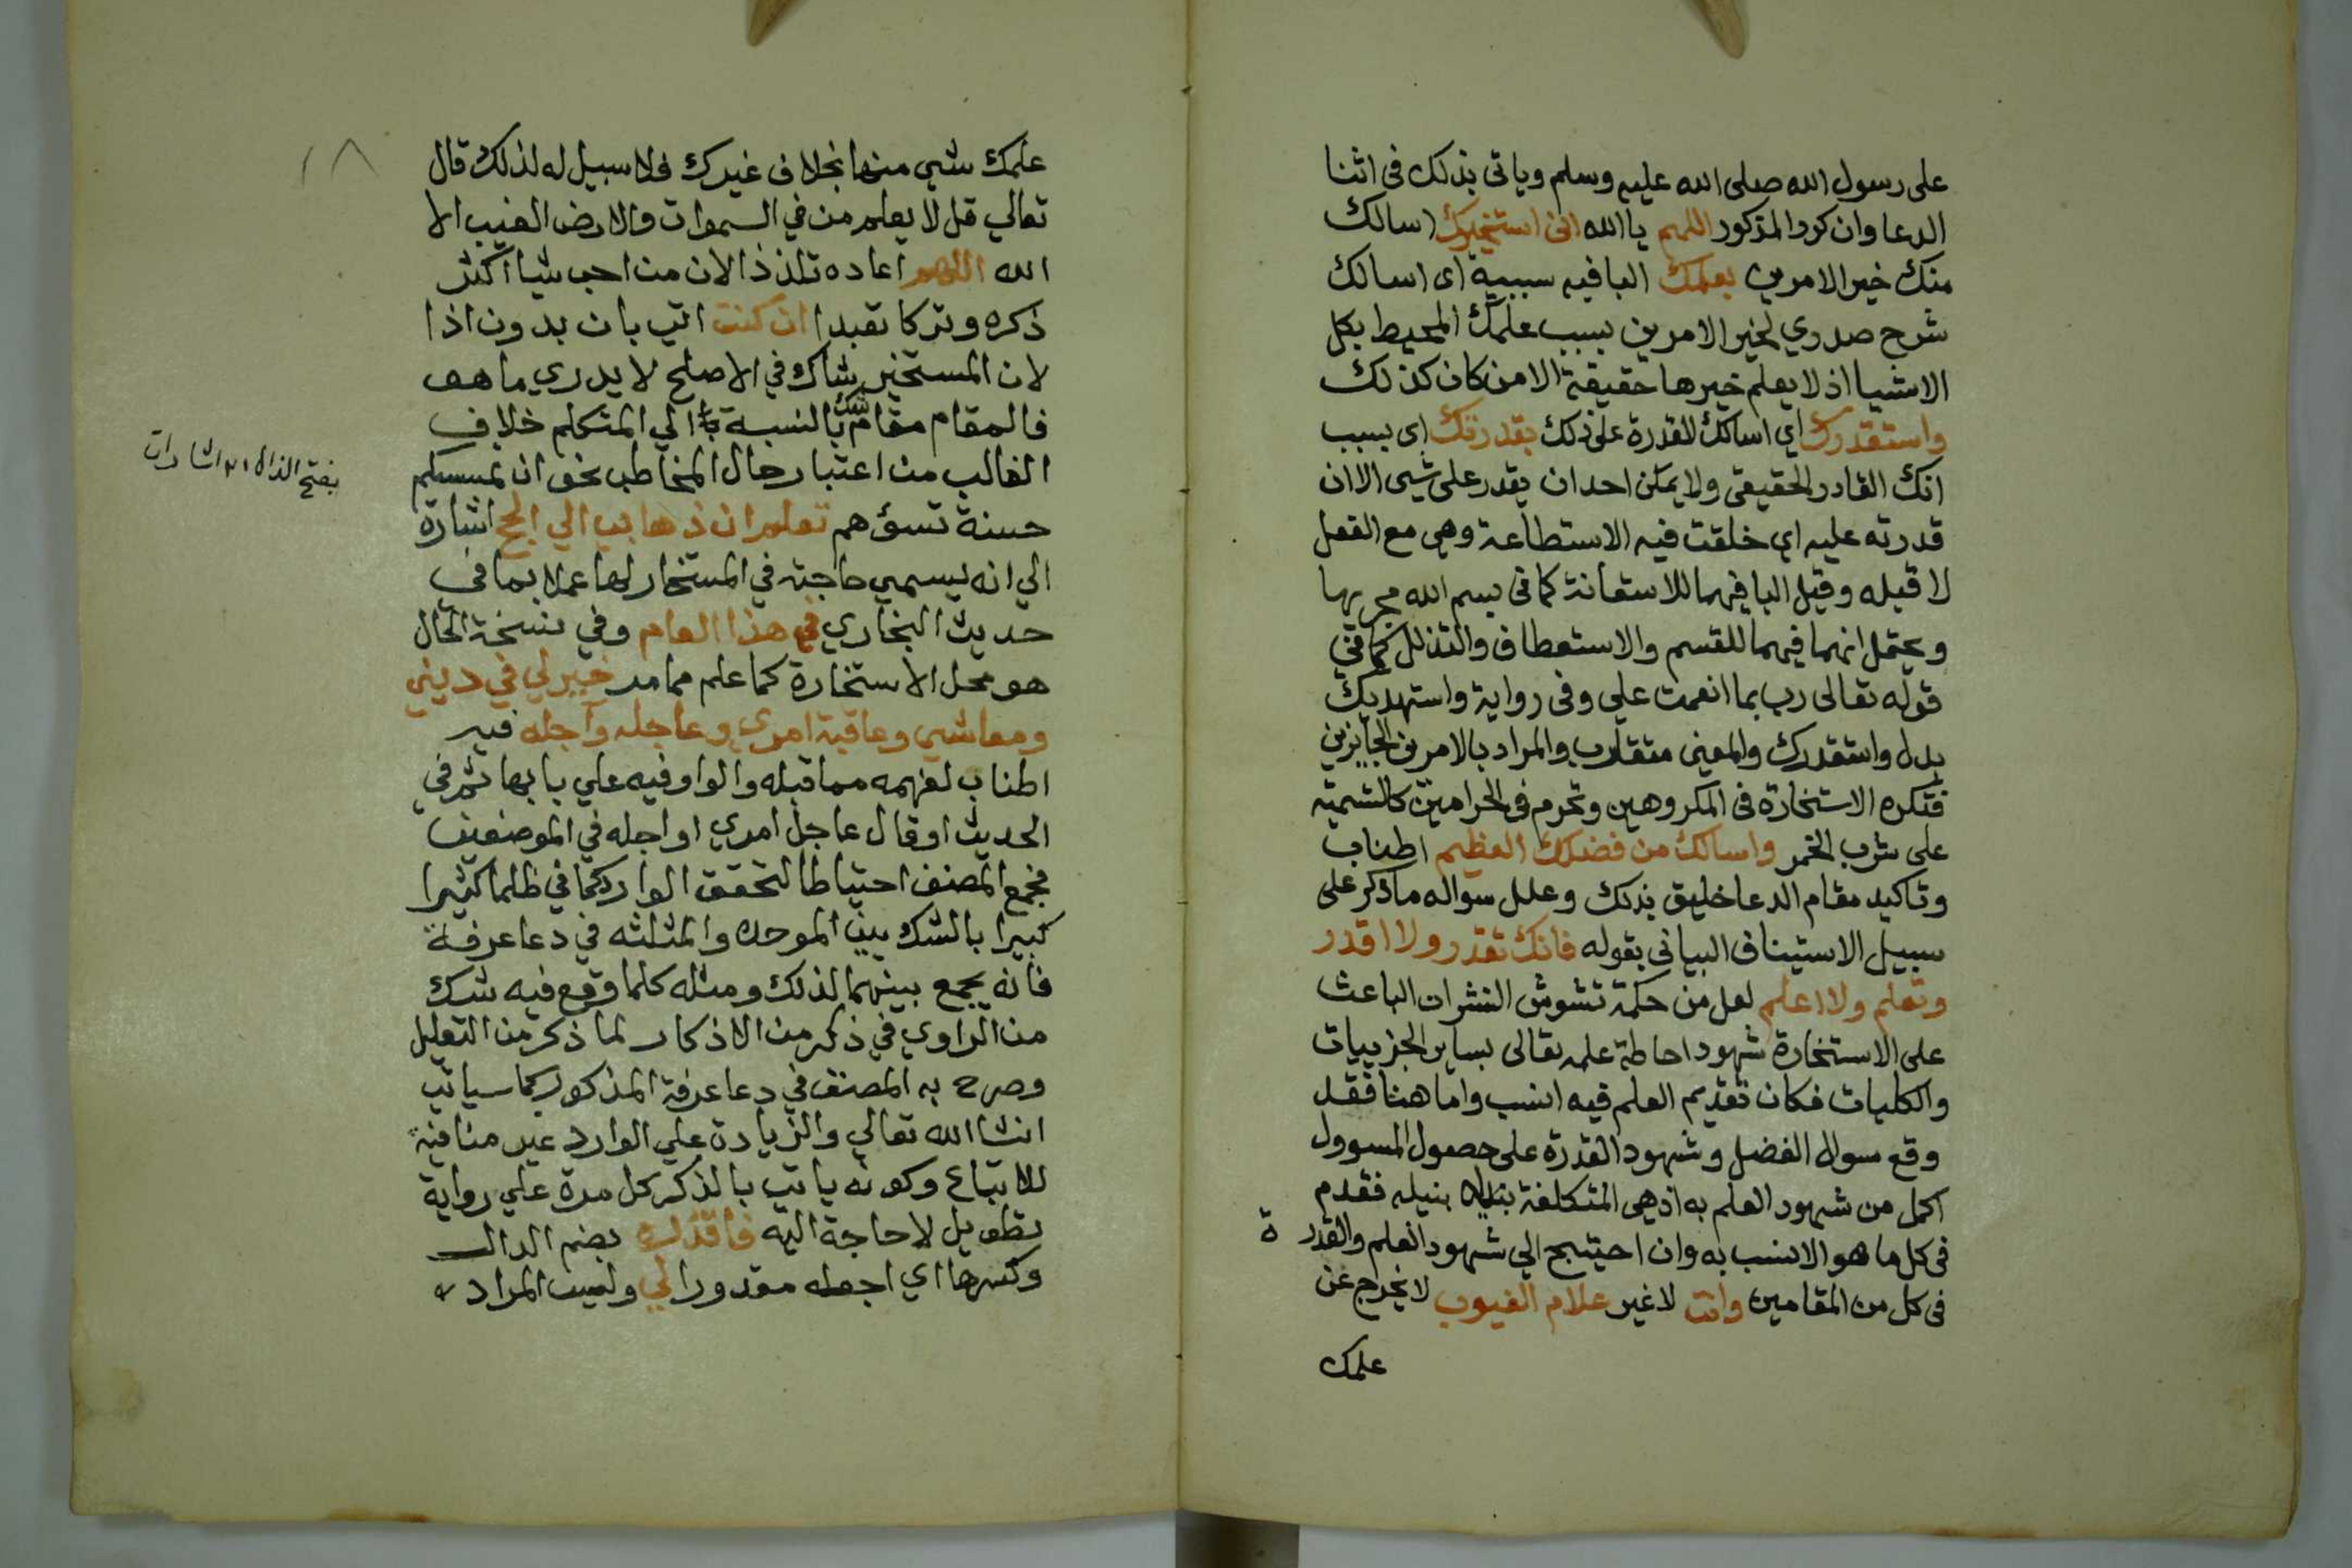 على رسول الله صلى الله عليه وسلم وياتى بذلك فى اثنا
الدعا وان كرر المذكور اللهم يا الله انى استخيرك اسالك
منك خير الامرين بعلمك البا فيه سببية اى اسالك
شرح صدري لخير الامرين بسبب علمك المحيط بكل
الاشيا اذ لا يعلم خيرها حقيقة الا من كان كذلك
واستقدرك اي اسالك القدرة على ذلك بقدرتك اى بسبب
انك القادر الحقيقى ولا يمكن احد ان يقدر على شيى الا ان
قدرته عليه اي خلقت فيه الاستطاعة وهى مع الفعل
لا قبله وقيل البا فيهما للاستعانة كما فى بسم الله مجريها
ويحتمل انهما فيهما للقسم والاستعطاف والتذلل كما في
قوله تعالى رب بما انعمت علي وفى رواية واستهديك
بدل واستقدرك والمعنى متقارب والمراد بالامرين الجايزين
فتكره الاستخارة فى المكروهين وتحرم فى الحرامين كالتسمية
على شرب الخمر واسالك من فضلك العظيم اطناب
وتاكيد مقام الدعا خليق بذلك وعلل سواله ما ذكر على
سبيل الاستيناف البيانى بقوله فانك تقدر ولا اقدر
وتعلم ولا اعلم لعل من حكمة تشوش النشر ان الباعث
على الاستخارة شهود احاطة علمه تعالى بساير الجزييات
والكليات فكان تقديم العلم فيه انسب واما هنا فقد
وقع سوال الفضل وشهود القدرة على حصول المسوول
اكمل من شهود العلم به اذ هى المتكلفة بنيله فقدم
فى كل ما هو الانسب به وان احتيج الي شهود العلم والقدرة
فى كل من المقامين وانت لا غير علام الغيوب لا يخرج عن
علمك
١٨
علمك شيي منها بخلاف غيرك فلا سبيل له لذلك قال
تعالي قل لا يعلم من في السموات والارض الغيب الا
الله اللهم اعاده تلذذا لان من احب شيا اكثر
ذكره وتركا تعبدا ان كنت اتي بان بدون اذا
لان المستخير شاك في الاصلح لا يدري ما هو
فالمقام مقام شك بالنسبة الي المتكلم خلاف
الغالب من اعتبار حال المخاطب نحو ان تمسسكم
حسنة تسؤهم تعلم ان ذهابي الي الحج اشارة
الي انه يسمي حاجته في المستخار لها عملا بما في
حديث البخاري في هذا العام وفي نسخة الحال
هو محل الاستخارة كما علم مما مر خير لي في ديني
ومعاشي وعاقبة امري وعاجله وآجله فيه
اطناب لفهمه مما قبله والواو فيه علي بابها ثم في
الحديث او قال عاجل امري او اجله في الموضعين
فجمع المصنف احتياطا لتحقق الوارد كما في ظلما كثيرا
كبيرا بالشك بين الموحده والمثلثه في دعا عرفة
فانه يجمع بينهما لذلك ومثله كلما وقع فيه شك
من الراوي في ذكر من الاذكار لما ذكر من التعليل
وصرح به المصنف في دعا عرفة المذكور كما سياتي
انشا الله تعالي والزيادة علي الوارد غير منافية
للاتباع وكونه ياتي بالذكر كل مرة علي رواية
تطويل لا حاجة اليه فاقدره بضم الدال
وكسرها اي اجعله مقدورا لي وليس المراد